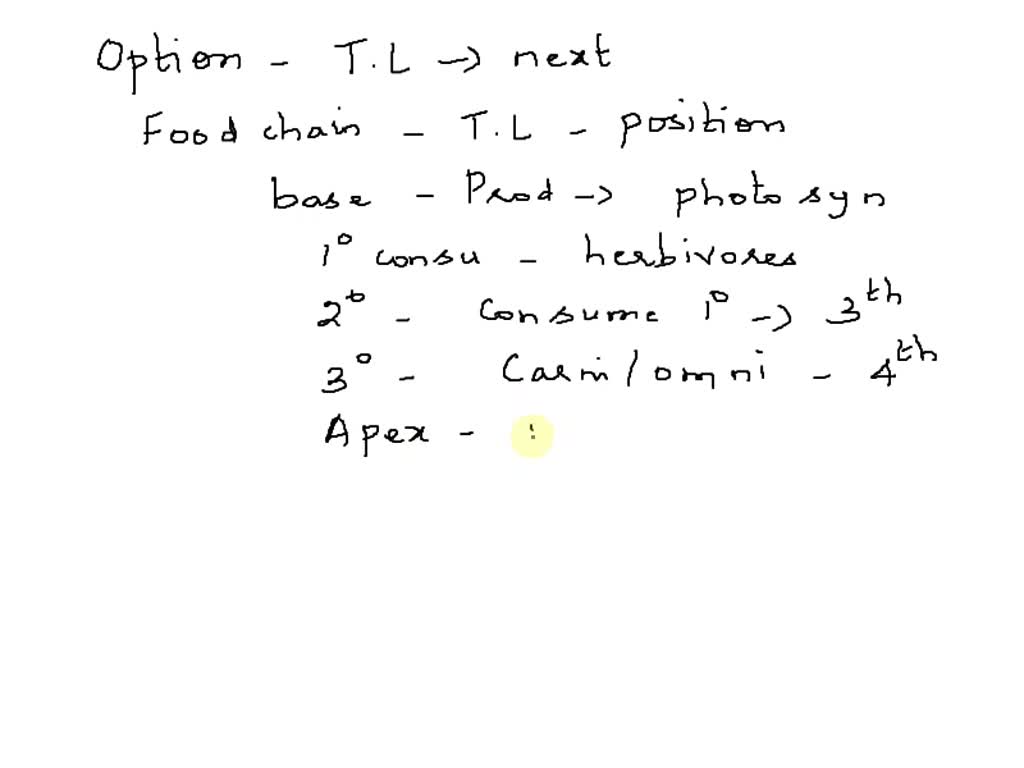 Option - T.L → next
Food chain - T.L - position
base - Prod → photo syn
1° consu - herbivores
2° - Consume 1° → 3th
3° - Carni/omni - 4th
Apex -